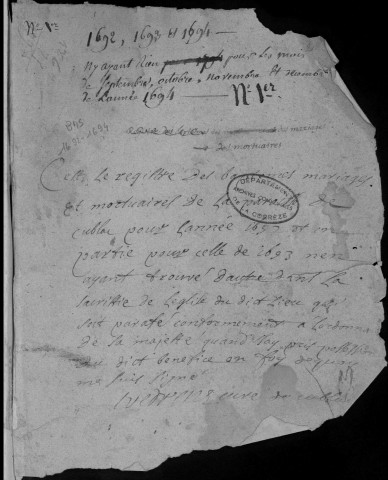 N.º 1er
1692, 1693 et 1694
N'y ayant Rien pour les mois
de Septembre, octobre, Novembre et decembre
de L'année 1694 N.º 1er
BMS
1692-1694
des mariages
des mortuaires
Cest le registre des baptemes mariages
et mortuaires de la paroisse de
cublac pour lannée 1692 et en
partie pour celle de 1693 nen
ayant trouvé dautre dans la
sacristie de leglise du dict lieu qui
soit parafé conformement a lordonna
de la majesté quand jay pris possession
du dict benefice en foy de quoy
me suis signé
curé de cublac
DÉPARTEMENTALES
DE LA CORRÈZE